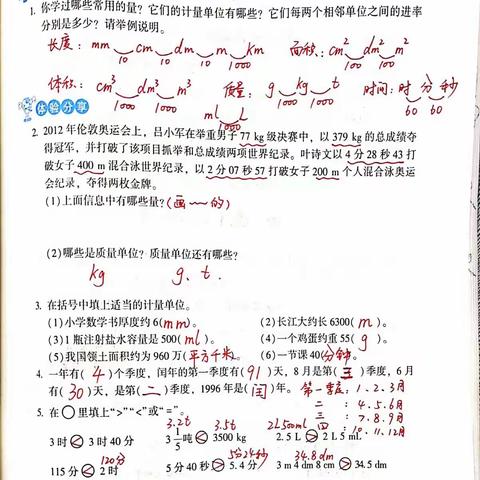 1. 你学过哪些常用的量？它们的计量单位有哪些？它们每两个相邻单位之间的进率
分别是多少？请举例说明。
长度：mm cm dm m km 面积：cm² dm² m²
10 10 10 1000 100 100
体积：cm³ dm³ m³ 质量：g kg t 时间：时 分 秒
1000 1000 1000 1000 60 60
ml L
1000
体验分享
2. 2012 年伦敦奥运会上，吕小军在举重男子 77 kg 级决赛中，以 379 kg 的总成绩夺
得冠军，并打破了该项目抓举和总成绩两项世界纪录。叶诗文以 4 分 28 秒 43 打
破女子 400 m 混合泳世界纪录，以 2 分 07 秒 57 打破女子 200 m 个人混合泳奥运
会纪录，夺得两枚金牌。
(1)上面信息中有哪些量？(画～的)
(2)哪些是质量单位？质量单位还有哪些？
kg g、t.
3. 在括号中填上适当的计量单位。
(1)小学数学书厚度约 6(mm)。 (2)长江大约长 6300( m )。
(3)1 瓶注射盐水容量是 500(ml)。 (4)一个鸡蛋约重 55( g )。
(5)我国领土面积约为 960 万(平方千米)。 (6)一节课 40(分钟)。
4. 一年有( 4 )个季度，闰年的第一季度有(91)天，8 月是第(三)季度，6 月
有(30)天，是第(二)季度，1996 年是(闰)年。 第一季度：1、2、3月
二：4、5、6月
三：7、8、9月
四：10、11、12月
5. 在○里填上“>”“<”或“=”。
3.2t 3.5t 2L500ml
3 时 < 3 时 40 分 3 1/5 吨 < 3500 kg 2.5 L > 2 L 5 mL
120分 5分24秒 34.8dm
115 分 < 2 时 5 分 40 秒 > 5.4 分 3 m 4 dm 8 cm > 34.5 dm